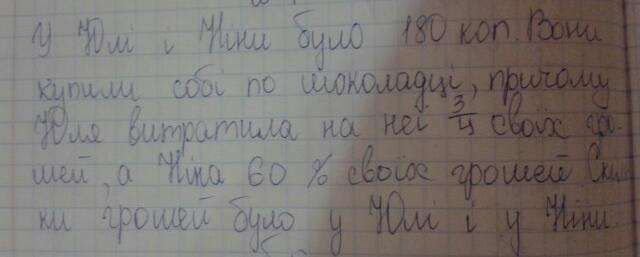 У Юлі і Ніни було 180 коп. Вони
купили собі по шоколадці, причому
Юля витратила на неї 3/4 своїх гро-
шей, а Ніна 60 % своїх грошей. Скіль-
ки грошей було у Юлі і у Ніни.